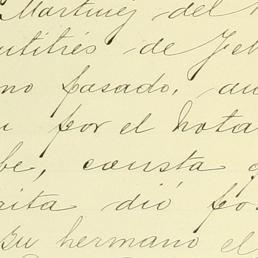 Martinez del
de Feb
no pasado, an
por el Nota
be, consta
rita dió fo
su hermano el